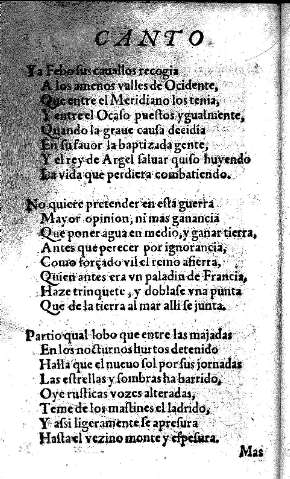 CANTO
Ya Febo sus cauallos recogia
A los amenos valles de Ocidente,
Que entre el Meridiano los tenia,
Y entre el Ocaso puestos ygualmente,
Quando la graue causa decidia
En su fauor la baptizada gente,
Y el rey de Argel saluar quiso huyendo
La vida que perdiera combatiendo.
No quiere pretender en esta guerra
Mayor opinion, ni mas ganancia
Que poner agua en medio, y ganar tierra,
Antes que perecer por ignorancia,
Como forçado vil el remo afierra,
Quien antes era vn paladin de Francia,
Haze trinquete, y doblase vna punta
Que de la tierra al mar alli se junta.
Partio qual lobo que entre las majadas
En los nocturnos hurtos detenido
Halla que el nueuo sol por sus jornadas
Las estrellas y sombras ha barrido,
Oye rusticas vozes alteradas,
Teme de los mastines el ladrido,
Y assi ligeramente se apresura
Hasta el vezino monte y espesura.
Mas